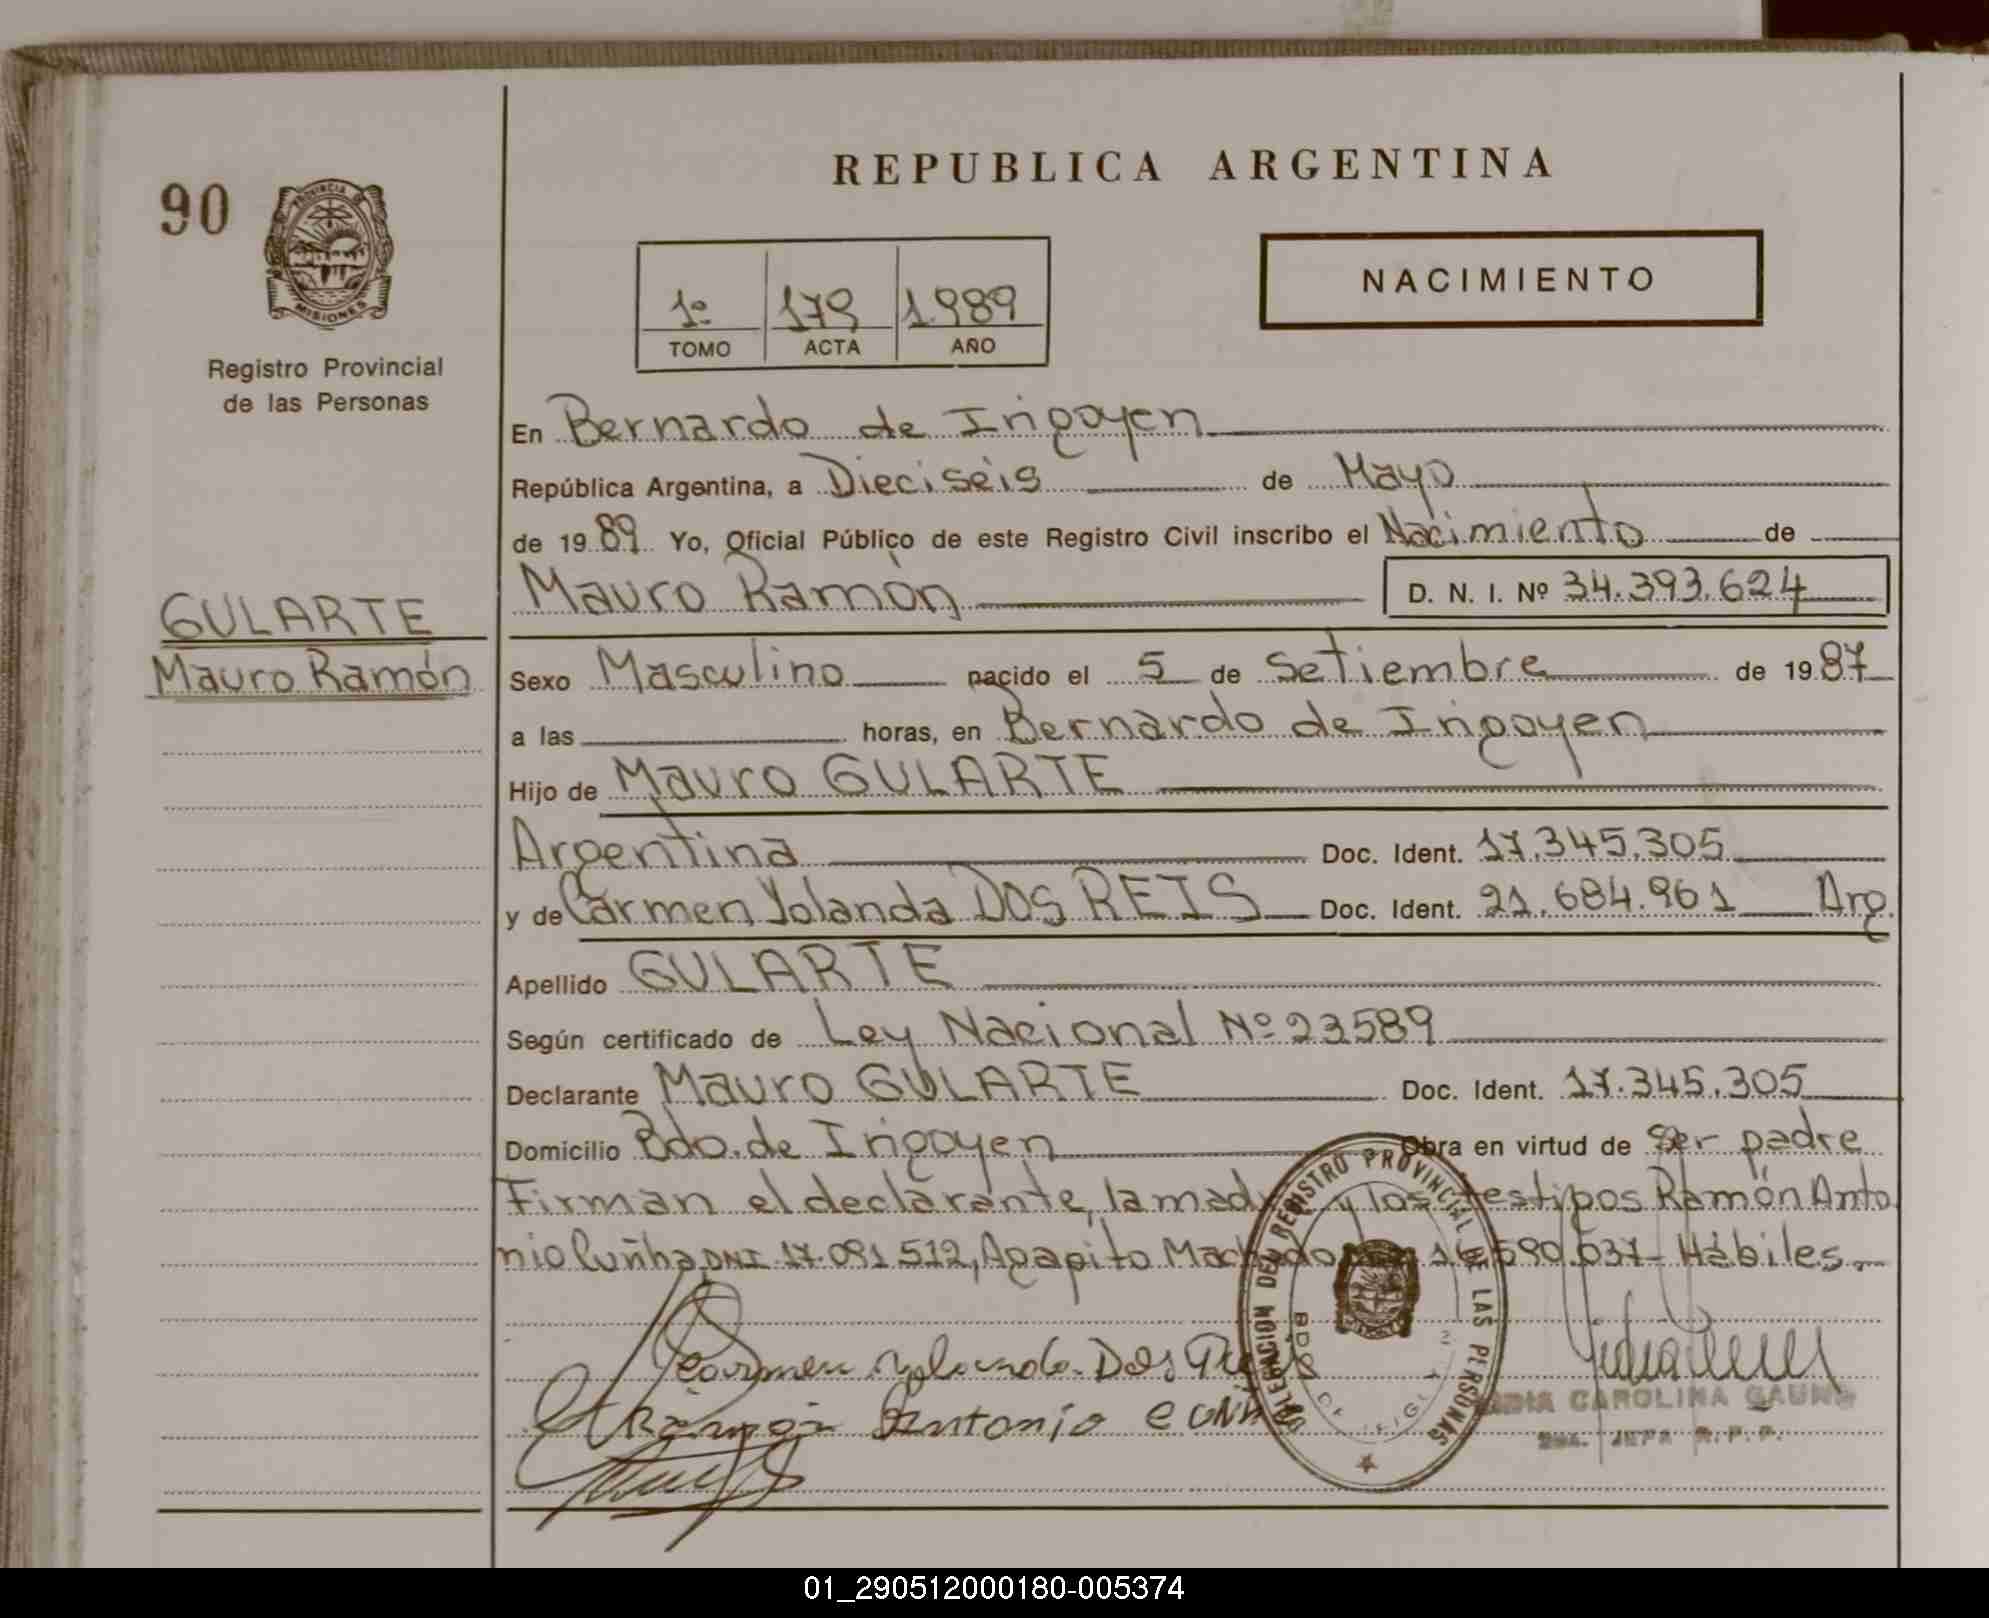 REPUBLICA ARGENTINA
90
PROVINCIA DE
MISIONES
Registro Provincial
de las Personas
NACIMIENTO
1º 179 1.989
TOMO ACTA AÑO
En Bernardo de Irigoyen
República Argentina, a Dieciseis de Mayo
de 19 89 Yo, Oficial Público de este Registro Civil inscribo el Nacimiento de
Mauro Ramón D. N. I. Nº 34.393.624
GULARTE
Mauro Ramón
Sexo Masculino nacido el 5 de Setiembre de 19 87
a las horas, en Bernardo de Irigoyen
Hijo de Mauro GULARTE
Argentina Doc. Ident. 17.345.305
y de Carmen Yolanda DOS REIS Doc. Ident. 21.684.961 Arg.
Apellido GULARTE
Según certificado de Ley Nacional Nº 23589
Declarante Mauro GULARTE Doc. Ident. 17.345.305
Domicilio Bdo. de Irigoyen Obra en virtud de ser padre
Firman el declarante, la madre y los testigos Ramón Anto
nio Cuñha DNI 17.091.512, Agapito Machado 16.590.037 - Hábiles.
Carmen Yolanda Dos Reis
Ramón Antonio Cunha
DELEGACION DEL REGISTRO PROVINCIAL DE LAS PERSONAS
BDO. DE IRIGOYEN
CAROLINA GAUNA
JEFA R.P.P.
01_290512000180-005374